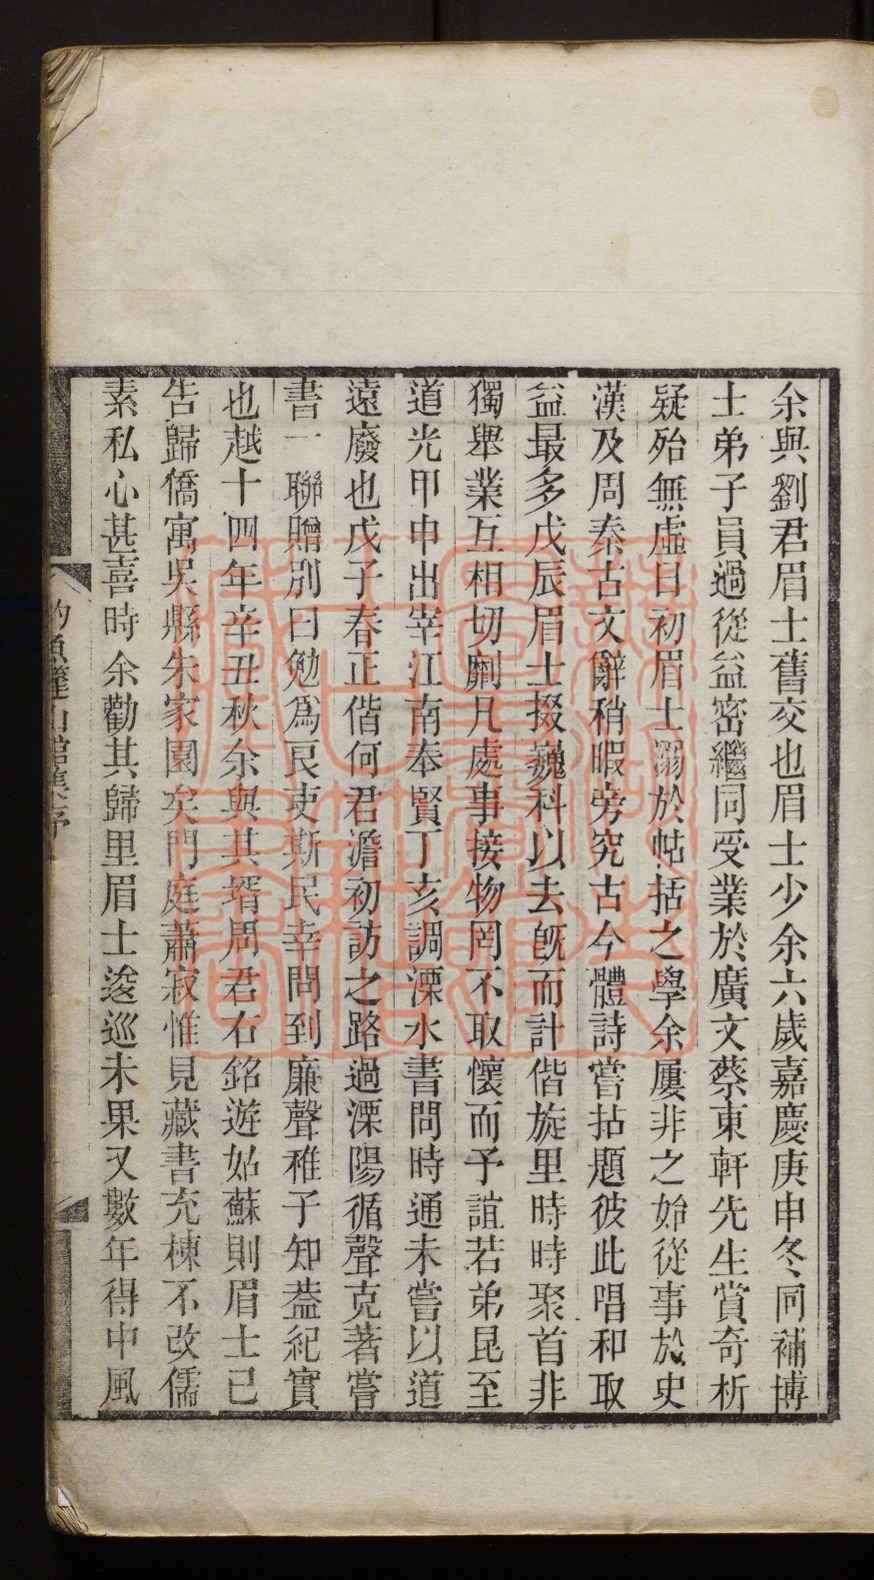 余與劉君眉士舊交也眉士少余六歲嘉慶庚申冬同補博
士弟子員過從益密繼同受業於廣文蔡東軒先生賞奇析
疑殆無虛日初眉士溺於帖括之學余屢非之始從事於史
漢及周秦古文辭稍暇旁究古今體詩嘗拈題彼此唱和取
益最多戊辰眉士掇巍科以去旣而計偕旋里時時聚首非
獨舉業互相切劘凡處事接物罔不取懷而予誼若弟昆至
道光甲申出宰江南奉賢丁亥調溧水書問時通未嘗以道
遠廢也戊子春正偕何君澹初訪之路過溧陽循聲克著嘗
書一聯贈別曰勉爲良吏斯民幸問到廉聲稚子知葢紀實
也越十四年辛丑秋余與其壻周君右銘遊姑蘇則眉士已
告歸僑寓吳縣朱家園矣門庭蕭寂惟見藏書充棟不改儒
素私心甚喜時余勸其歸里眉士逡巡未果又數年得中風
釣魚篷山館集序